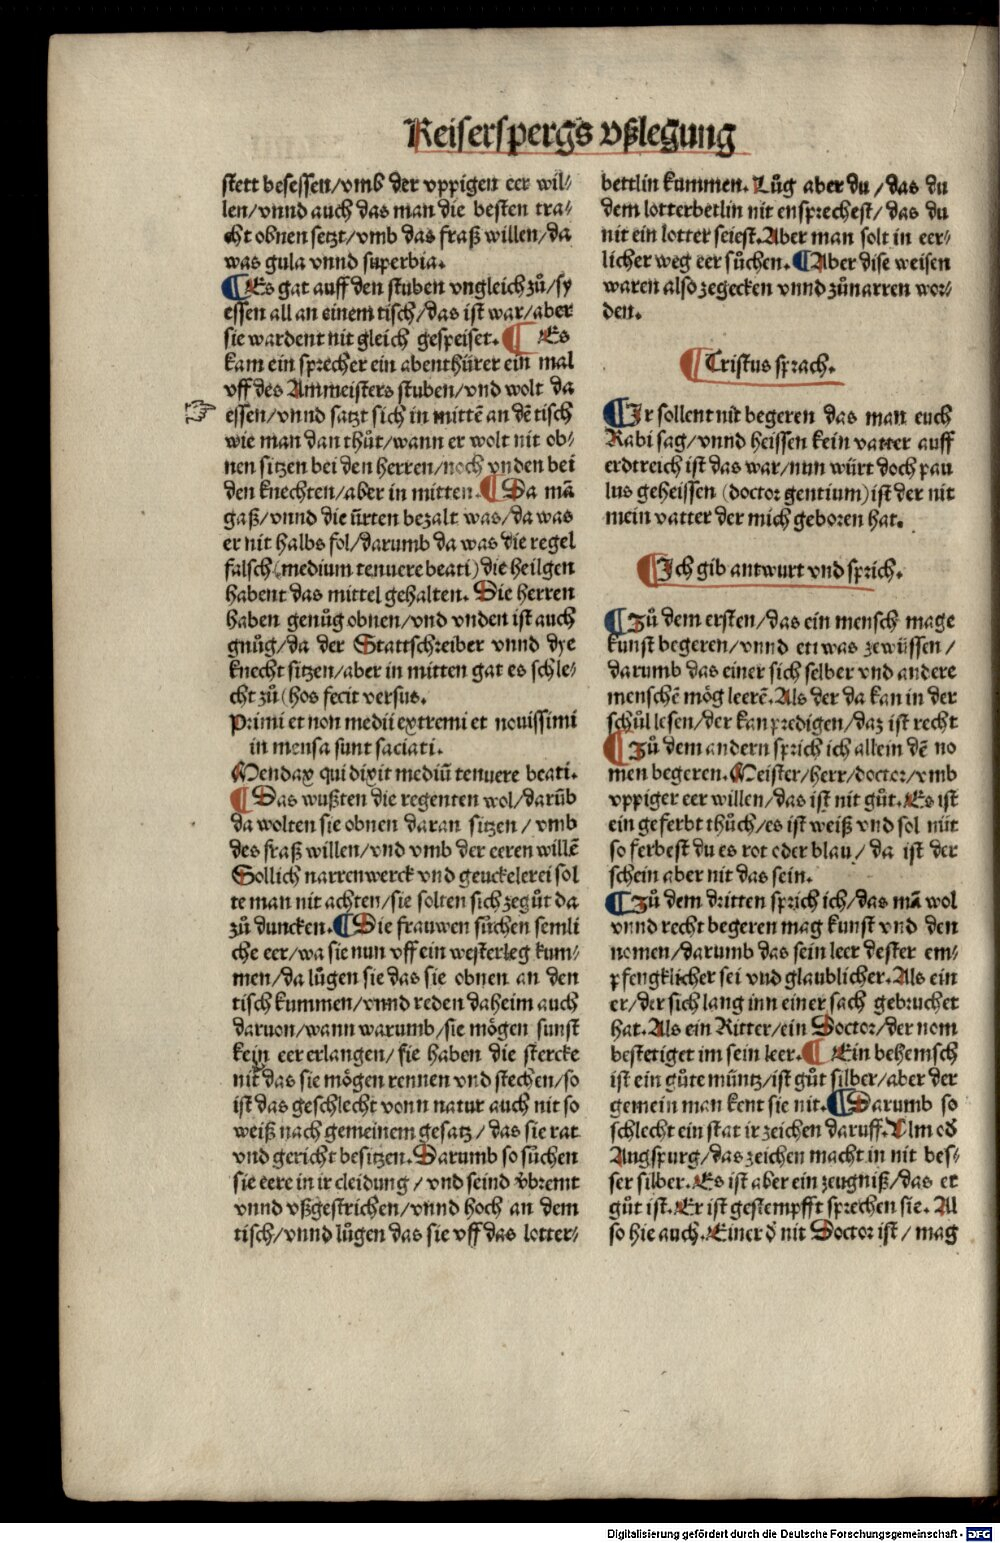 Keiserspergs vßlegung
stett besessen/vmb der vppigen eer wil⸗
len/vnnd auch das man die besten tra⸗
cht obnen setzt/vmb das fraß willen/da
was gula vnnd superbia.
¶Es gat auff den stuben vngleich zů/sy
essen all an einem tisch/das ist war/aber
sie wardent nit gleich gespeiset.¶ Es
kam ein sprecher ein abenthürer ein mal
vff des Ammeisters stuben/vnd wolt da
essen/vnnd satzt sich in mittẽ an dẽ tisch
wie man dan thůt/wann er wolt nit ob⸗
nen sitzen bei den herren/noch vnden bei
den knechten/aber in mitten.¶Da mã
gaß/vnnd die ürten bezalt was/da was
er nit halbs fol/darumb da was die regel
falsch(medium tenuere beati)die heilgen
habent das mittel gehalten. Die herren
haben genůg obnen/vnd vnden ist auch
gnůg/da der Stattschreiber vnnd dye
knecht sitzen/aber in mitten gat es schle⸗
cht zů(hos fecit versus.
Primi et non medii extremi et nouissimi
in mensa sunt saciati.
Mendax qui dixit mediũ tenuere beati.
¶Das wußten die regenten wol/darũb
da wolten sie obnen daran sitzen/vmb
des fraß willen/vnd vmb der eeren willẽ
Sollich narrenwerck vnd geuckelerei sol
te man nit achten/sie solten sich zegůt da
zů duncken.¶Die frauwen sůchen semli
che eer/wa sie nun vff ein westerleg kum⸗
men/da lůgen sie das sie obnen an den
tisch kummen/vnnd reden daheim auch
daruon/wann warumb/sie mögen sunst
kein eer erlangen/sie haben die stercke
nit das sie mögen rennen vnd stechen/so
ist das geschlecht vonn natur auch nit so
weiß nach gemeinem gesatz/das sie rat
vnd gericht besitzen.Darumb so sůchen
sie eere in ir cleidung/vnd seind v̈bremt
vnnd vßgestrichen/vnnd hoch an dem
tisch/vnnd lůgen das sie vff das lotter⸗
bettlin kummen. Lůg aber du/das du
dem lotterbetlin nit ensprechest/das du
nit ein lotter seiest.Aber man solt in eer⸗
licher weg eer sůchen.¶Aber dise weisen
waren also zegecken vnnd zůnarren wor⸗
den.
¶Cristus sprach.
¶Ir sollent nit begeren das man euch
Rabi sag/vnnd heissen kein vatter auff
erdtreich ist das war/nun würt doch pau
lus geheissen(doctor gentium)ist der nit
mein vatter der mich geboren hat.
¶Ich gib antwurt vnd sprich.
¶Zů dem ersten/das ein mensch mage
kunst begeren/vnnd etwas zewüssen/
darumb das einer sich selber vnd andere
menschẽ mög leerẽ.Als der da kan in der
schůl lesen/der kan predigen/daz ist recht
¶Zů dem andern sprich ich allein dẽ no
men begeren.Meister/herr/doctor/vmb
vppiger eer willen/das ist nit gůt.Es ist
ein geferbt thůch/es ist weiß vnd sol nüt
so ferbest du es rot oder blau/da ist der
schein aber nit das sein.
¶Zů dem dritten sprich ich/das mã wol
vnnd recht begeren mag kunst vnd den
nomen/darumb das sein leer dester em⸗
pfengklicher sei vnd glaublicher.Als ein
er/der sich lang inn einer sach gebruchet
hat.Als ein Ritter/ein Doctor/der nom
bestetiget im sein leer.¶ Ein behemsch
ist ein gůte müntz/ist gůt silber/aber der
gemein man kent sie nit.¶Darumb so
schlecht ein stat ir zeichen daruff.Ulm od̕
Augspurg/das zeichen macht in nit bes⸗
ser silber.Es ist aber ein zeugniß/das er
gůt ist.Er ist gestempfft sprechen sie. Al
so hie auch.Einer d̕ nit Doctor ist/mag
Digitalisierung gefördert durch die Deutsche Forschungsgemeinschaft - DFG